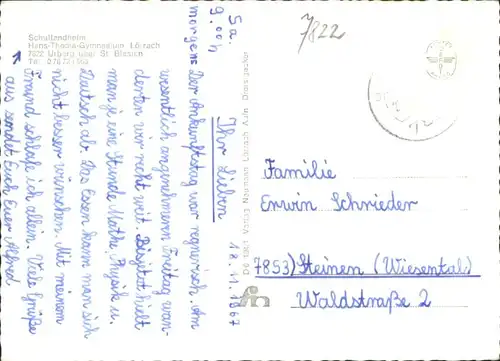 Schullandheim
Hans-Thoma-Gymnasium Lörrach
7822 Urberg über St. Blasien
Tel. 07672 /
7822
Sa.
9.00 h
morgens
18.11.1967
Ihr Lieben
Der Ankunftstag war regnerisch. Am
wesentlich angenehmeren Freitag wan-
derten wir recht weit. Bisejtzt hielt
man je eine Stunde Mathe, Physik u.
Deutsch ab. Das Essen kann man sich
nicht besser wünschen. Mit meinem
Freund schlafe ich allein. Viele Grüße
aus sendet Euch Euer Alfred
Verlag Neumann Lörrach
Familie
Erwin Schrieder
7853) Steinen (Wiesental)
Waldstraße 2